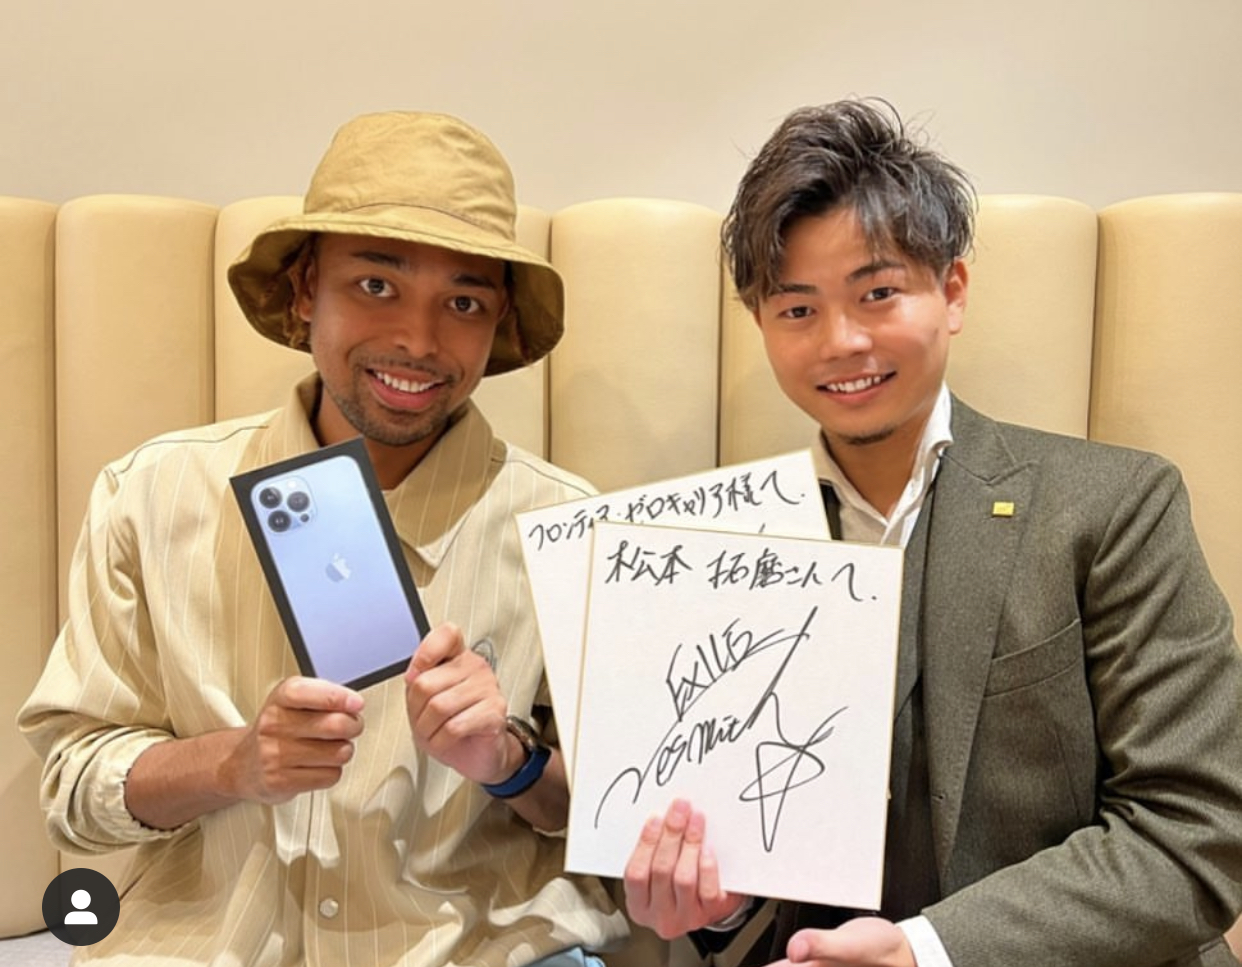 フロンティア・ゼロキャリア様へ.
松本 拓磨さんへ.
EXILE
NESMITH